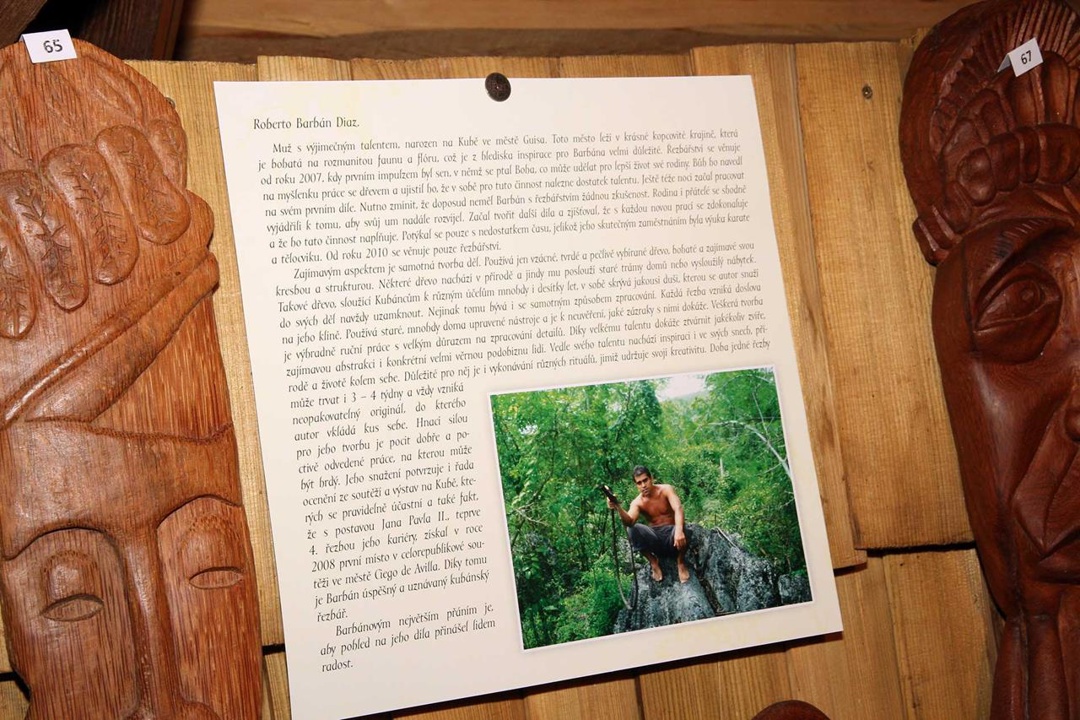 65
67
Roberto Barbán Diaz.
Muž s výjimečným talentem, narozen na Kubě ve městě Guisa. Toto město leží v krásné kopcovité krajině, která
je bohatá na rozmanitou faunu a flóru, což je z hlediska inspirace pro Barbána velmi důležité. Řezbářství se věnuje
od roku 2007, kdy prvním impulzem byl sen, v němž se ptal Boha, co může udělat pro lepší život své rodiny. Bůh ho navedl
na myšlenku práce se dřevem a ujistil ho, že v sobě pro tuto činnost nalezne dostatek talentu. Ještě téže noci začal pracovat
na svém prvním díle. Nutno zmínit, že doposud neměl Barbán s řezbářstvím žádnou zkušenost. Rodina i přátelé se shodně
vyjádřili k tomu, aby svůj um nadále rozvíjel. Začal tvořit další díla a zjišťoval, že s každou novou prací se zdokonaluje
a že ho tato činnost naplňuje. Potýkal se pouze s nedostatkem času, jelikož jeho skutečným zaměstnáním byla výuka karate
a tělocviku. Od roku 2010 se věnuje pouze řezbářství.
Zajímavým aspektem je samotná tvorba děl. Používá jen vzácné, tvrdé a pečlivě vybírané dřevo, bohaté a zajímavé svou
kresbou a strukturou. Některé dřevo nachází v přírodě a jindy mu poslouží staré trámy domů nebo vysloužilý nábytek.
Takové dřevo, sloužící Kubáncům k různým účelům mnohdy i desítky let, v sobě skrývá jakousi duši, kterou se autor snaží
do svých děl navždy uzamknout. Nejinak tomu bývá i se samotným způsobem zpracování. Každá řezba vzniká doslova
na jeho klíně. Používá staré, mnohdy doma upravené nástroje a je k neuvěření, jaké zázraky s nimi dokáže. Veškerá tvorba
je výhradně ruční práce s velkým důrazem na zpracování detailů. Díky velkému talentu dokáže ztvárnit jakékoliv zvíře,
zajímavou abstrakci i konkrétní velmi věrnou podobiznu lidí. Vedle svého talentu nachází inspiraci i ve svých snech, pří-
rodě a životě kolem sebe. Důležité pro něj je i vykonávání různých rituálů, jimiž udržuje svoji kreativitu. Doba jedné řezby
může trvat i 3 – 4 týdny a vždy vzniká
neopakovatelný originál, do kterého
autor vkládá kus sebe. Hnací silou
pro jeho tvorbu je pocit dobře a po-
ctivě odvedené práce, na kterou může
být hrdý. Jeho snažení potvrzuje i řada
ocenění ze soutěží a výstav na Kubě, kte-
rých se pravidelně účastní a také fakt,
že s postavou Jana Pavla II., teprve
4. řezbou jeho kariéry, získal v roce
2008 první místo v celorepublikové sou-
těži ve městě Ciego de Avilla. Díky tomu
je Barbán úspěšný a uznávaný kubánský
řezbář.
Barbánovým největším přáním je,
aby pohled na jeho díla přinášel lidem
radost.